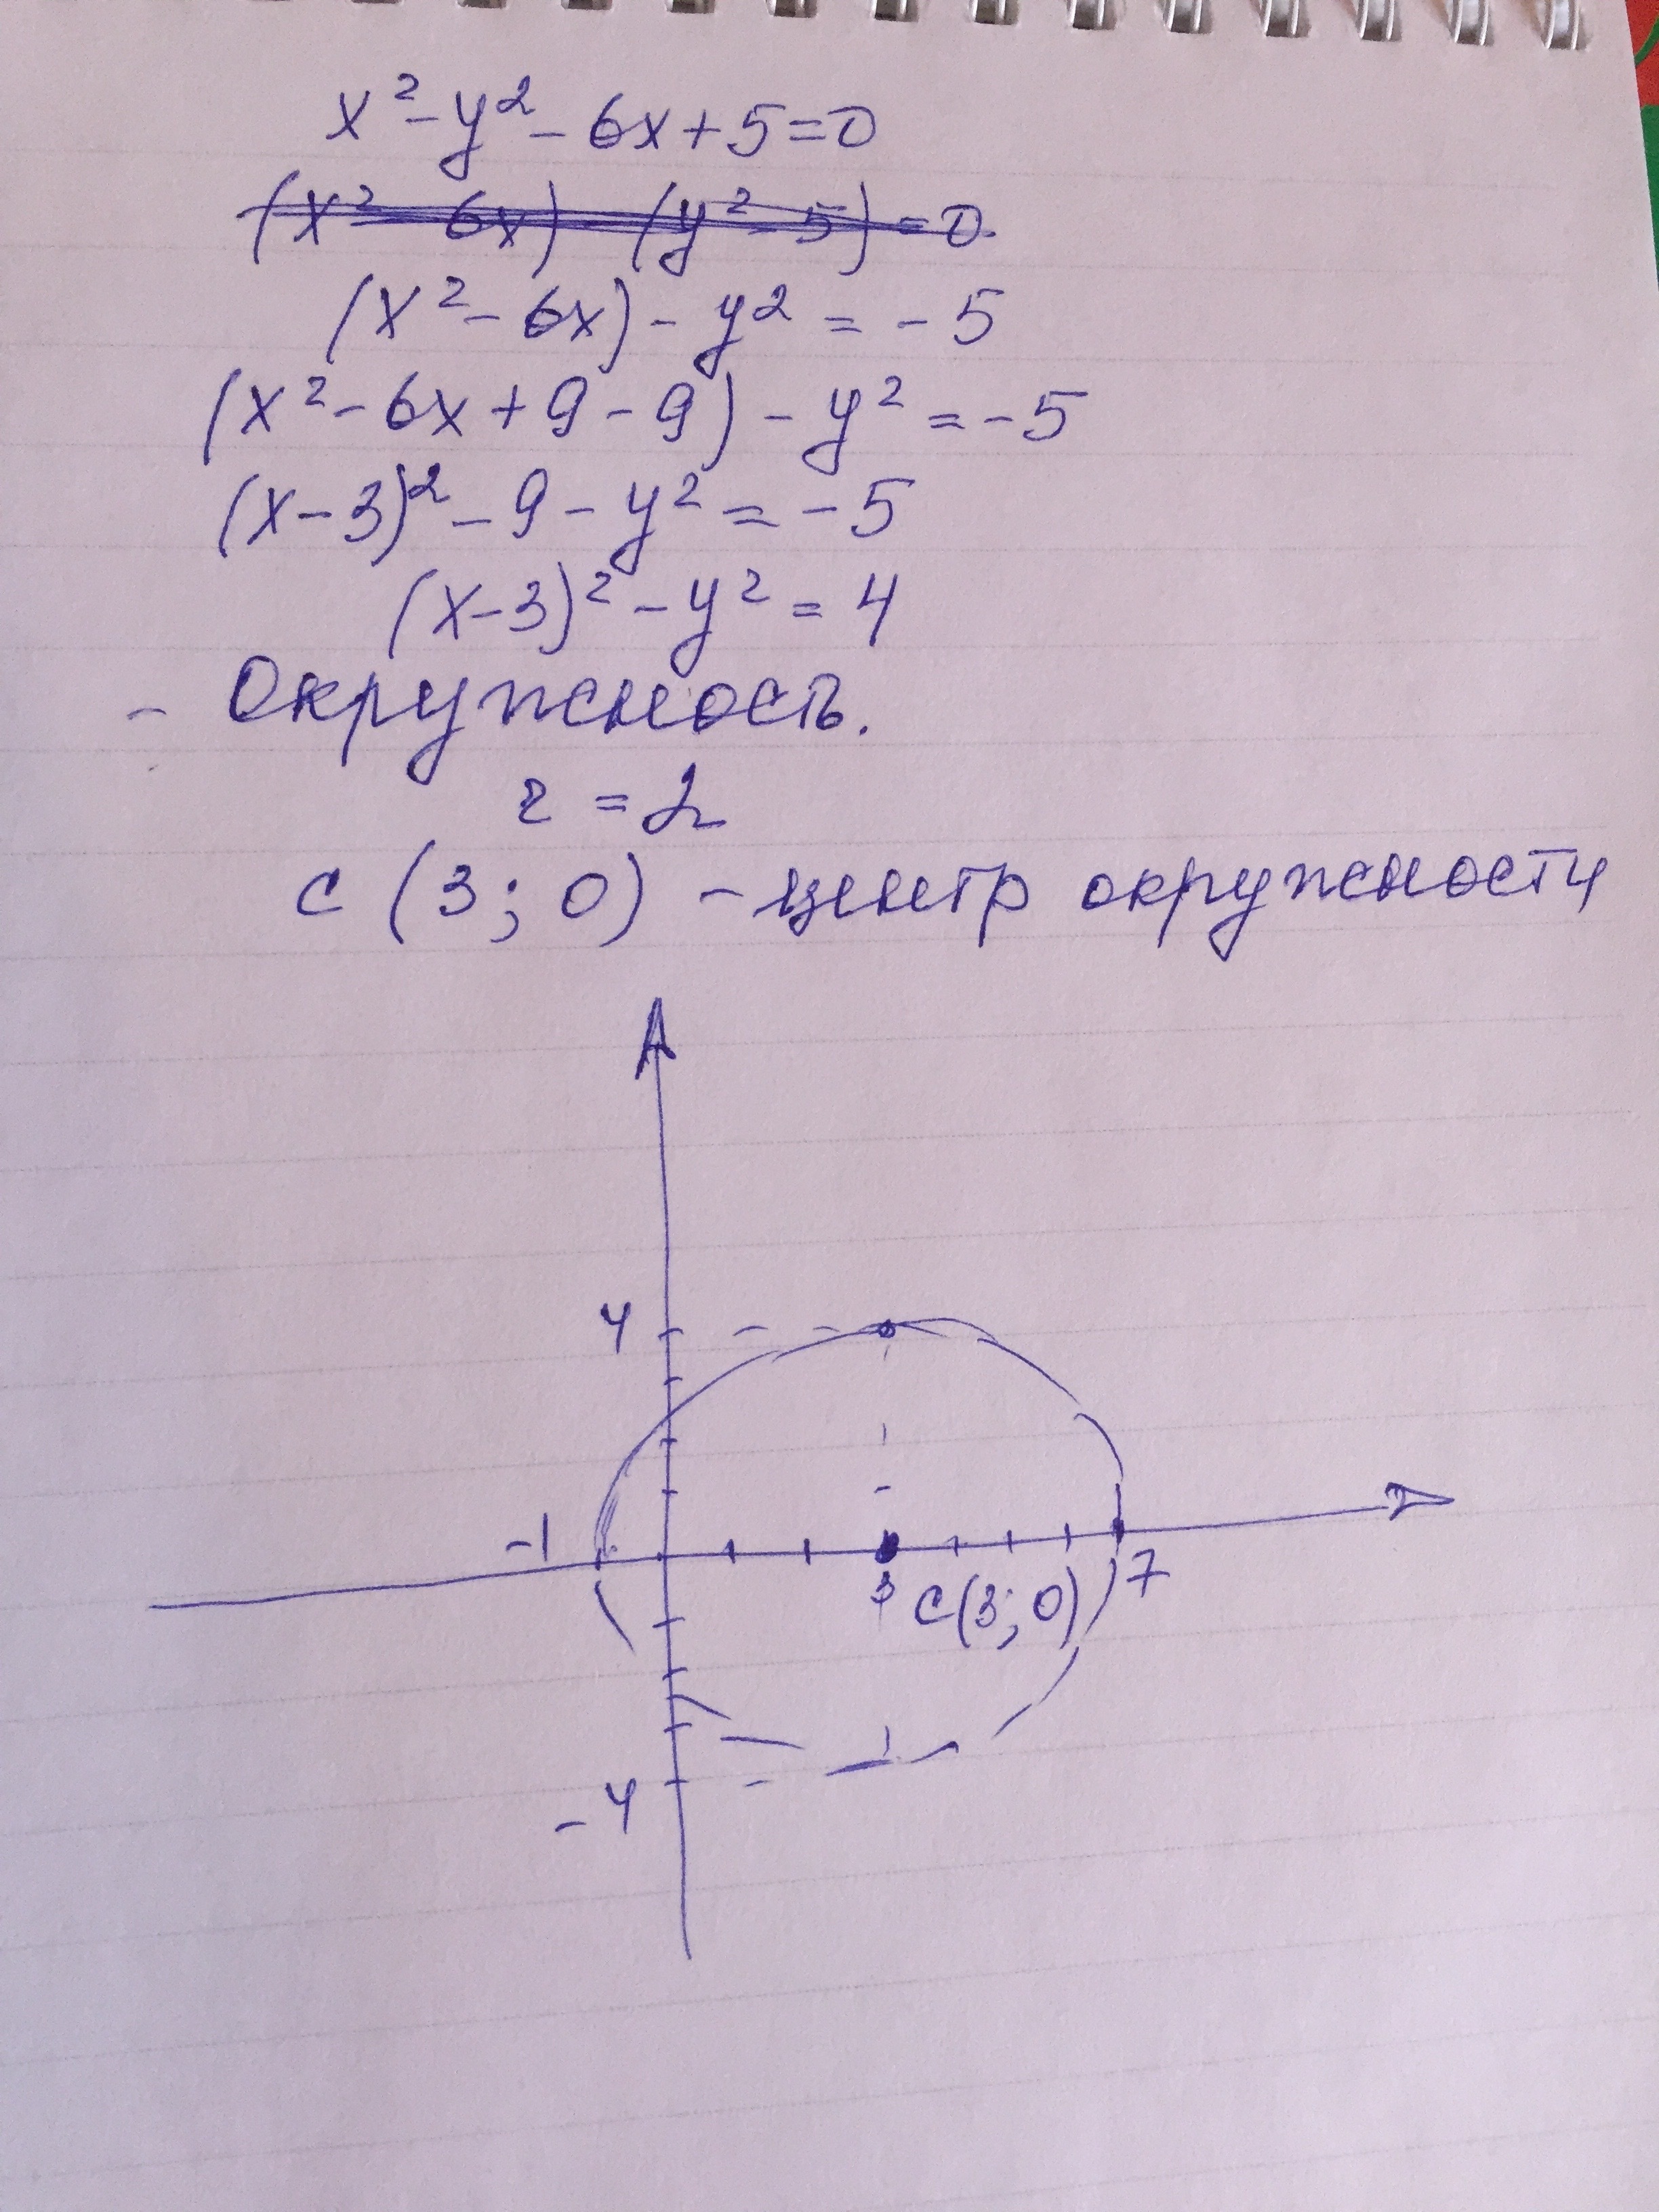 x² - y² - 6x + 5 = 0
(x² - 6x) - (y² - 5) = 0.
(x² - 6x) - y² = - 5
(x² - 6x + 9 - 9) - y² = - 5
(x - 3)² - 9 - y² = - 5
(x - 3)² - y² = 4
- Окружность.
r = 2
C (3; 0) - центр окружности
4
-1
3
C(3; 0)
7
-4